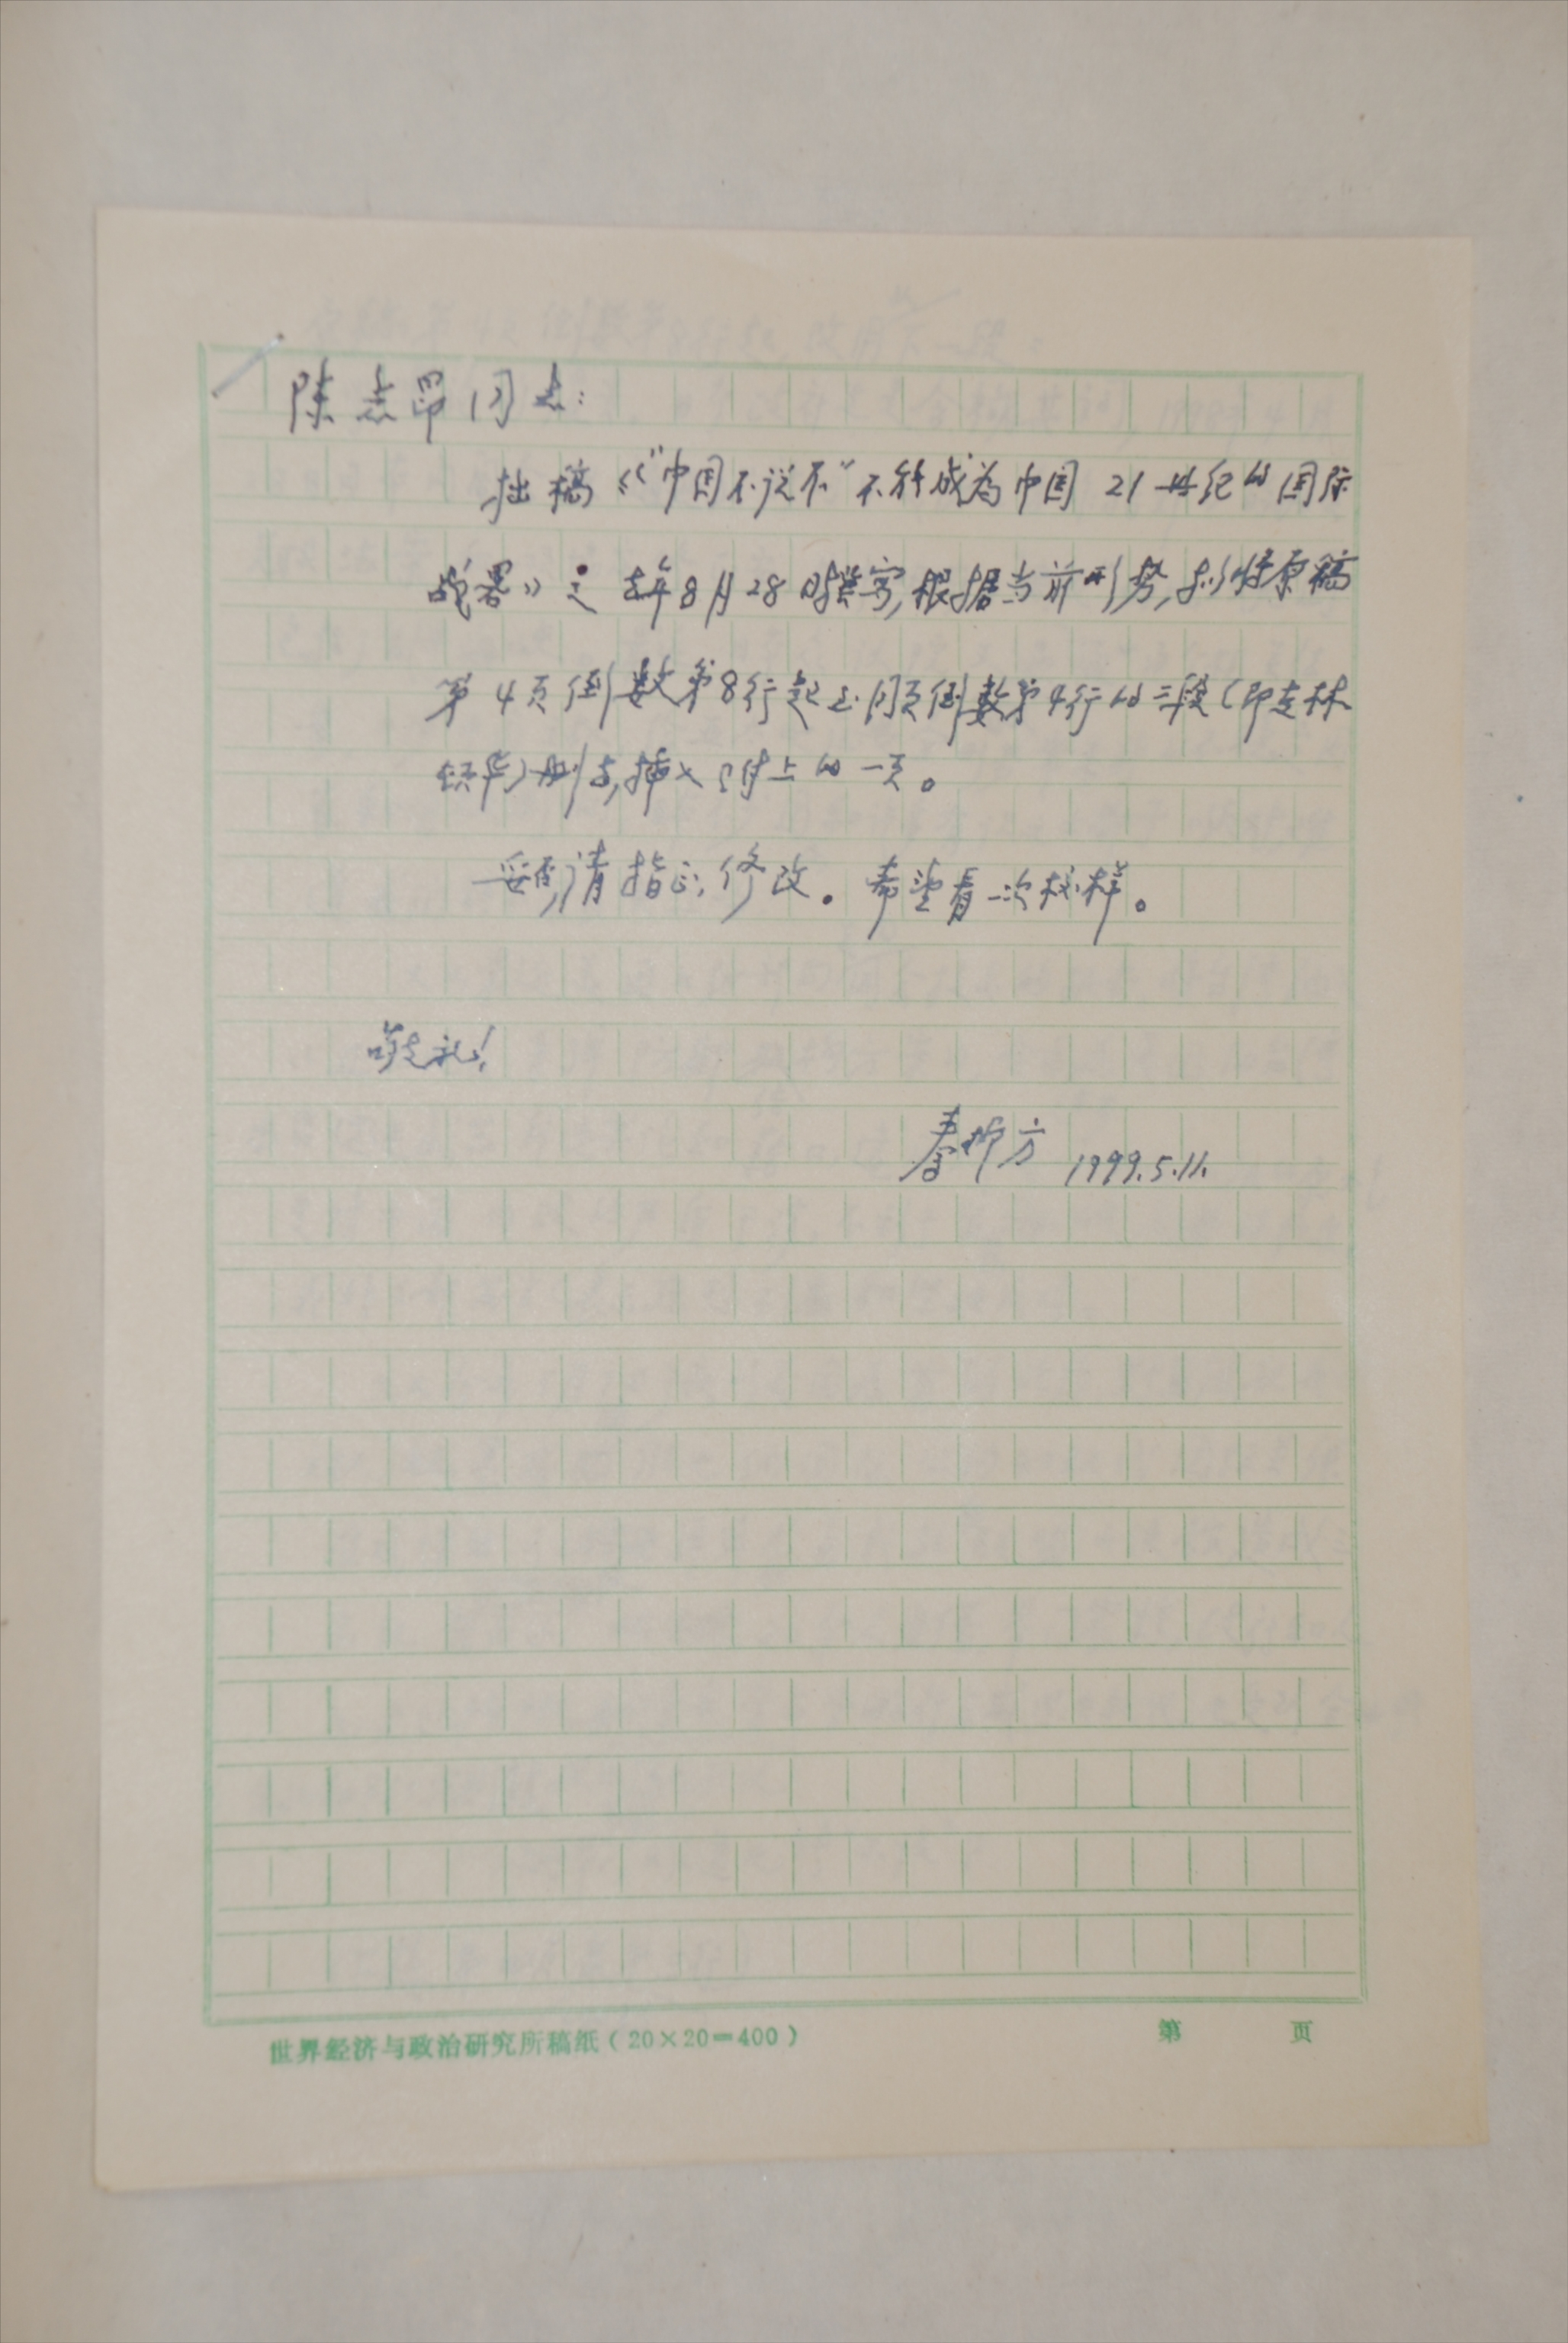 陈志昂同志:
拙稿《“中国不说不”不能成为中国21世纪的国际
战略》是去年8月28日撰写,根据当前形势,拟将原稿
第4页倒数第8行起至同页倒数第4行的三段(即克林
顿华)删去,插入附上的一页。
妥否,请指正、修改。希望看一次校样。
敬礼!
秦柳方 1999.5.11.
世界经济与政治研究所稿纸(20×20=400) 第 页